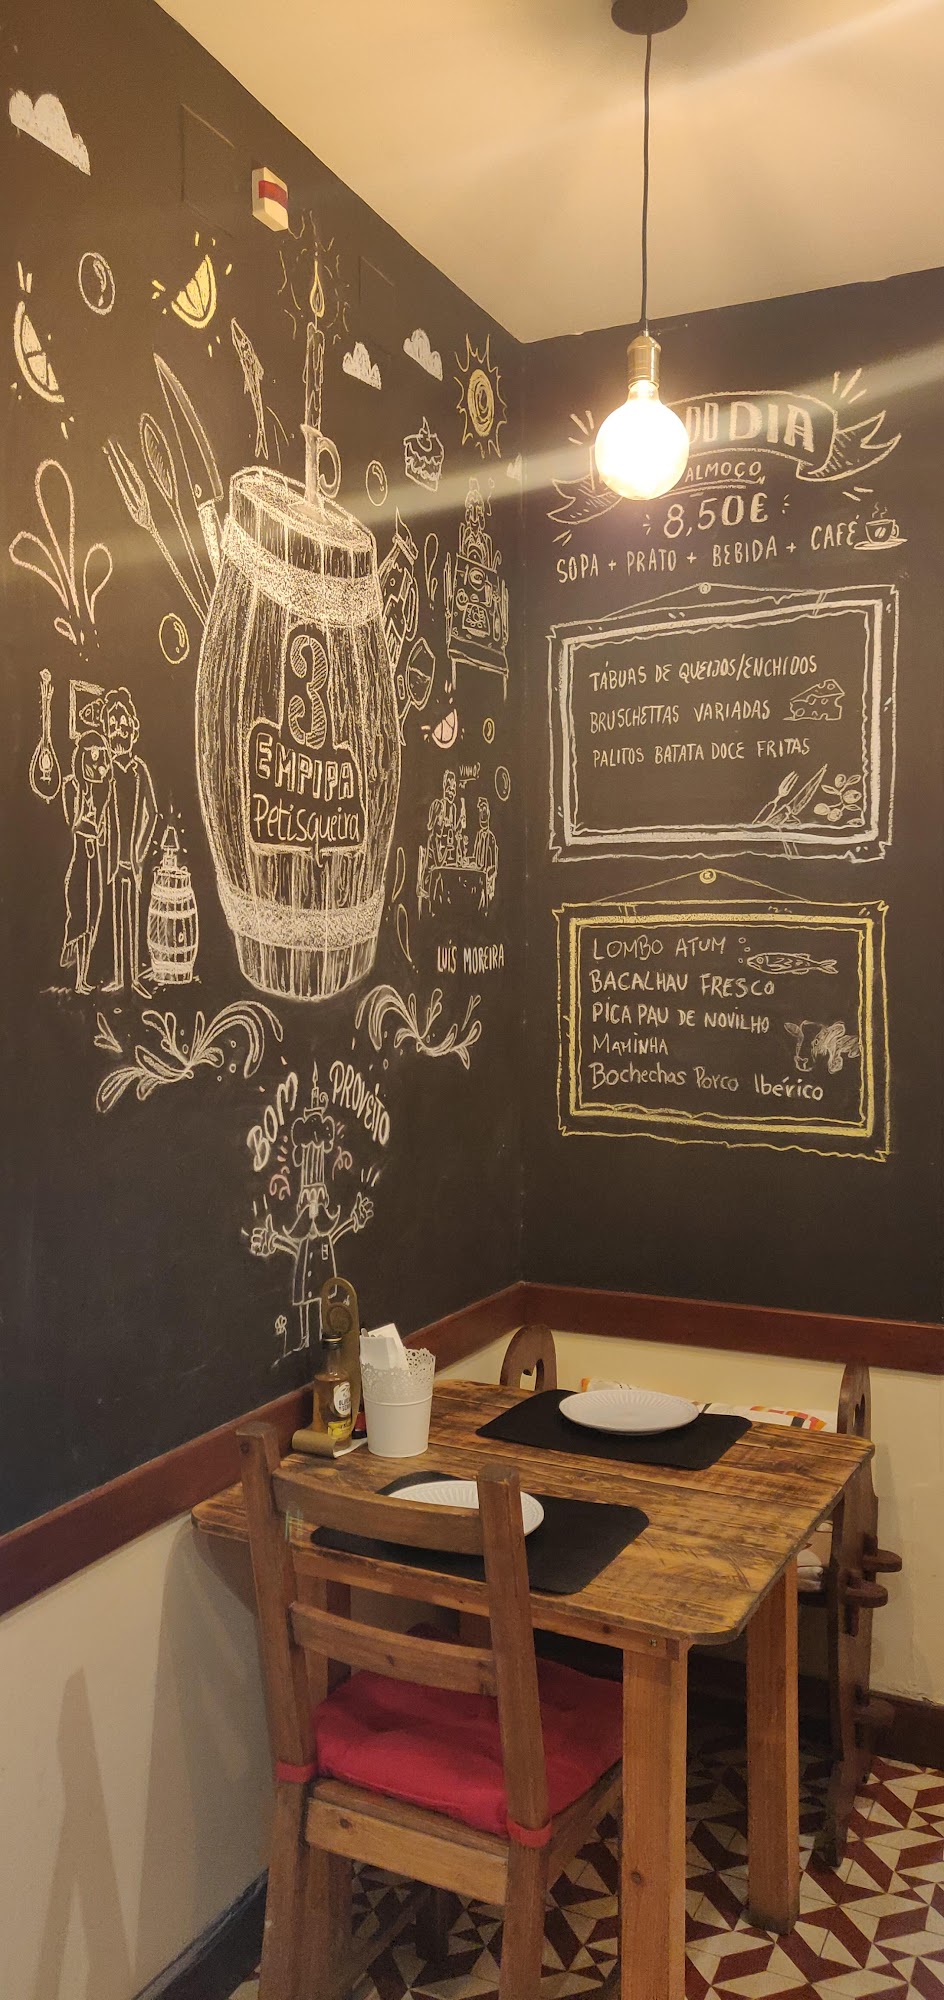 3
EMPIPA
Petisqueira
VINHO?
LUÍS MOREIRA
BOM PROVEITO
DIA
ALMOÇO
8,50€
SOPA + PRATO + BEBIDA + CAFÉ
TÁBUAS DE QUEIJOS/ENCHIDOS
BRUSCHETTAS VARIADAS
PALITOS BATATA DOCE FRITAS
LOMBO ATUM
BACALHAU FRESCO
PICA PAU DE NOVILHO
MAMINHA
Bochechas Porco Ibérico